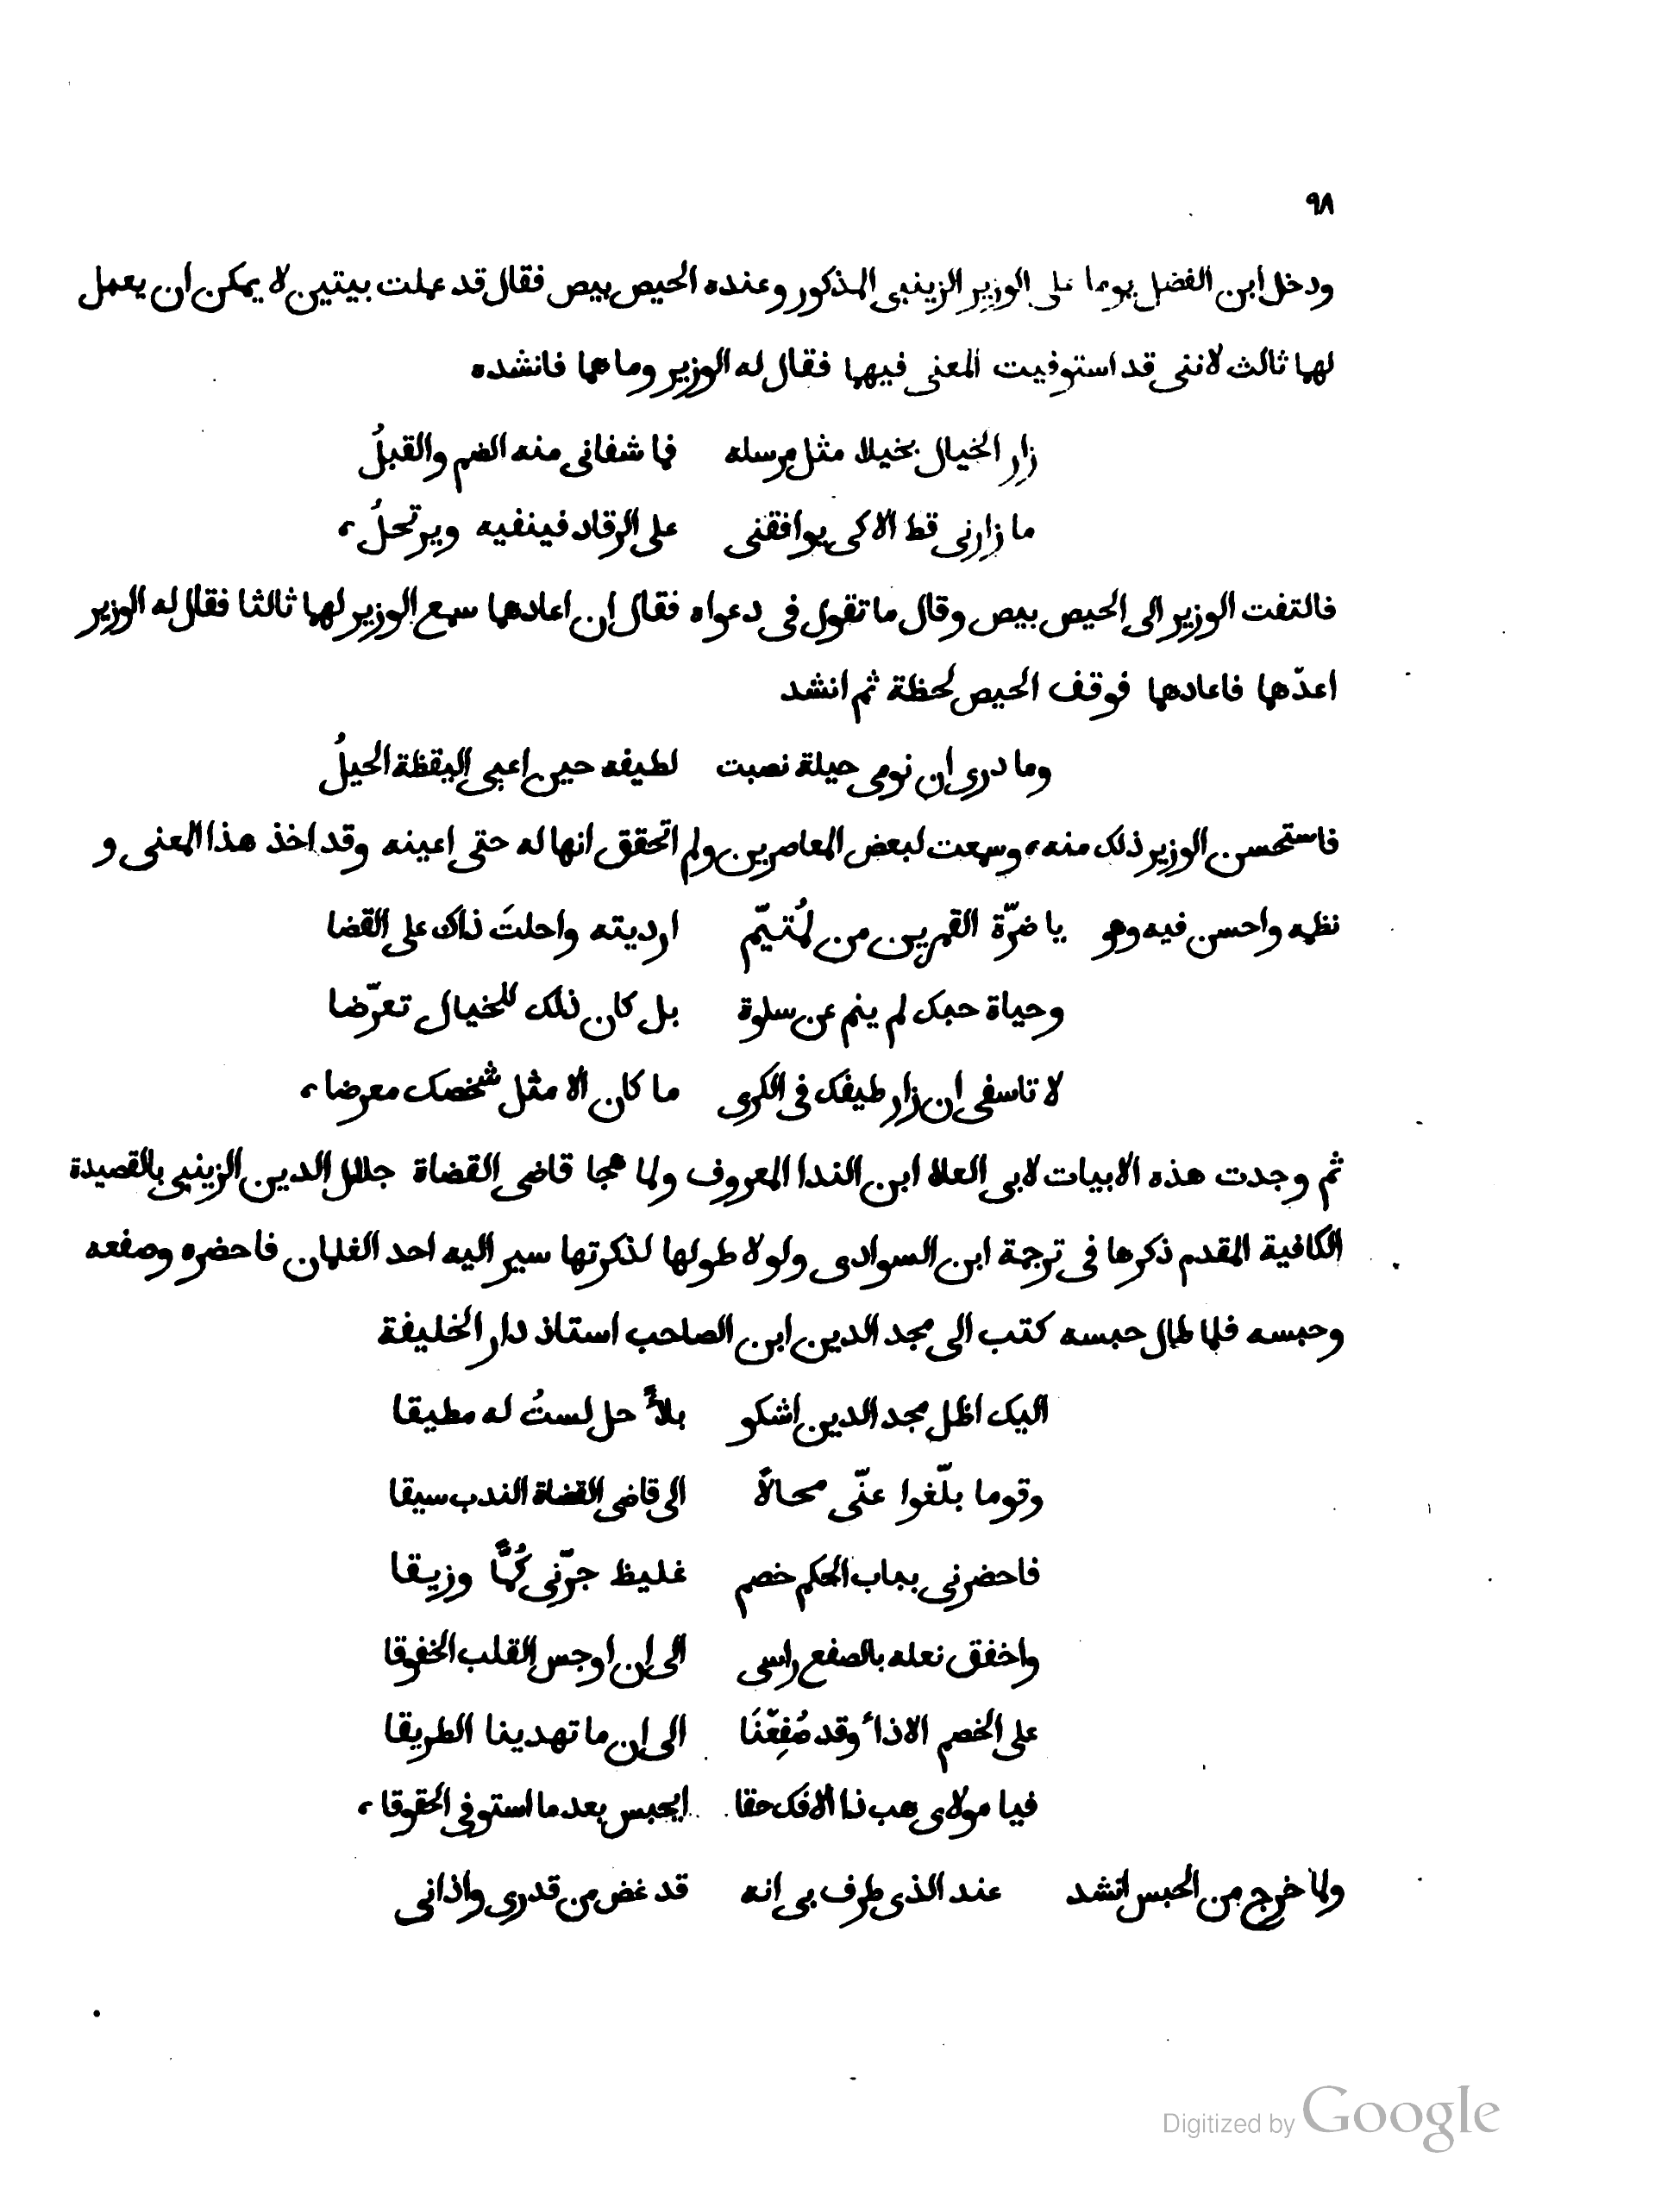 ٩٨
ودخل ابن الفضل يوما على الوزير الزينبى المذكور وعنده الحيص بيص فقال قد عملت بيتين لا يمكن ان يعمل
لهما ثالث لاننى قد استوفيت المعنى فيهما فقال له الوزير وما هما فانشده
زار الخيال بخيلا مثل مرسله فما شفانى منه الضم والقبلُ
ما زارنى قط الا كى يوافقنى على الرقاد فينفيه ويرتحلُ،
فالتفت الوزير الى الحيص بيص وقال ما تقول فى دعواه فقال ان اعادهما سمع الوزير لهما ثالثا فقال له الوزير
اعدّهما فاعادهما فوقف الحيص لحظة ثم انشد
وما درى ان نومى حيلة نصبت لطيفه حين اعيى اليقظة الحيلُ
فاستحسن الوزير ذلك منه، وسمعت لبعض المعاصرين ولم اتحقق انها له حتى اعينه وقد اخذ هذا المعنى و
نظمه واحسن فيه وهو يا ضرّة القمرين من لمُتيّم ارديته واحلتَ ذاك على القضا
وحياة حبك لم ينم عن سلوة بل كان ذلك للخيال تعرّضا
لا تاسفى ان زار طيفك فى الكرى ما كان الا مثل شخصك معرضا،
ثم وجدت هذه الابيات لابى العلا ابن الندا المعروف ولما هجا قاضى القضاة جلال الدين الزينبى بالقصيدة
الكافية المقدم ذكرها فى ترجمة ابن السوادى ولولا طولها لذكرتها سير اليه احد الغلمان فاحضره وصفعه
وحبسه فلما طال حبسه كتب الى مجد الدين ابن الصاحب استاذ دار الخليفة
اليك اظل مجد الدين اشكو بلاءً حل لستُ له مطيقا
وقوما بلّغوا عنّى محالاً الى قاضى القضاة الندب سيقا
فاحضرنى بباب الحكم خصم غليظ جرّنى كُمًّا وزيقا
واخفق نعله بالصفع راسى الى ان اوجس القلب الخفوقا
على الخصم الاذاء وقد صُفِعْنَا الى ان ما تهدينا الطريقا
فيا مولاى هب ذا الافك حقا ايحبس بعد ما استوفى الحقوقا،
ولما خرج من الحبس انشد عند الذى طرف بى انه قد غض من قدرى واذانى
Digitized by Google